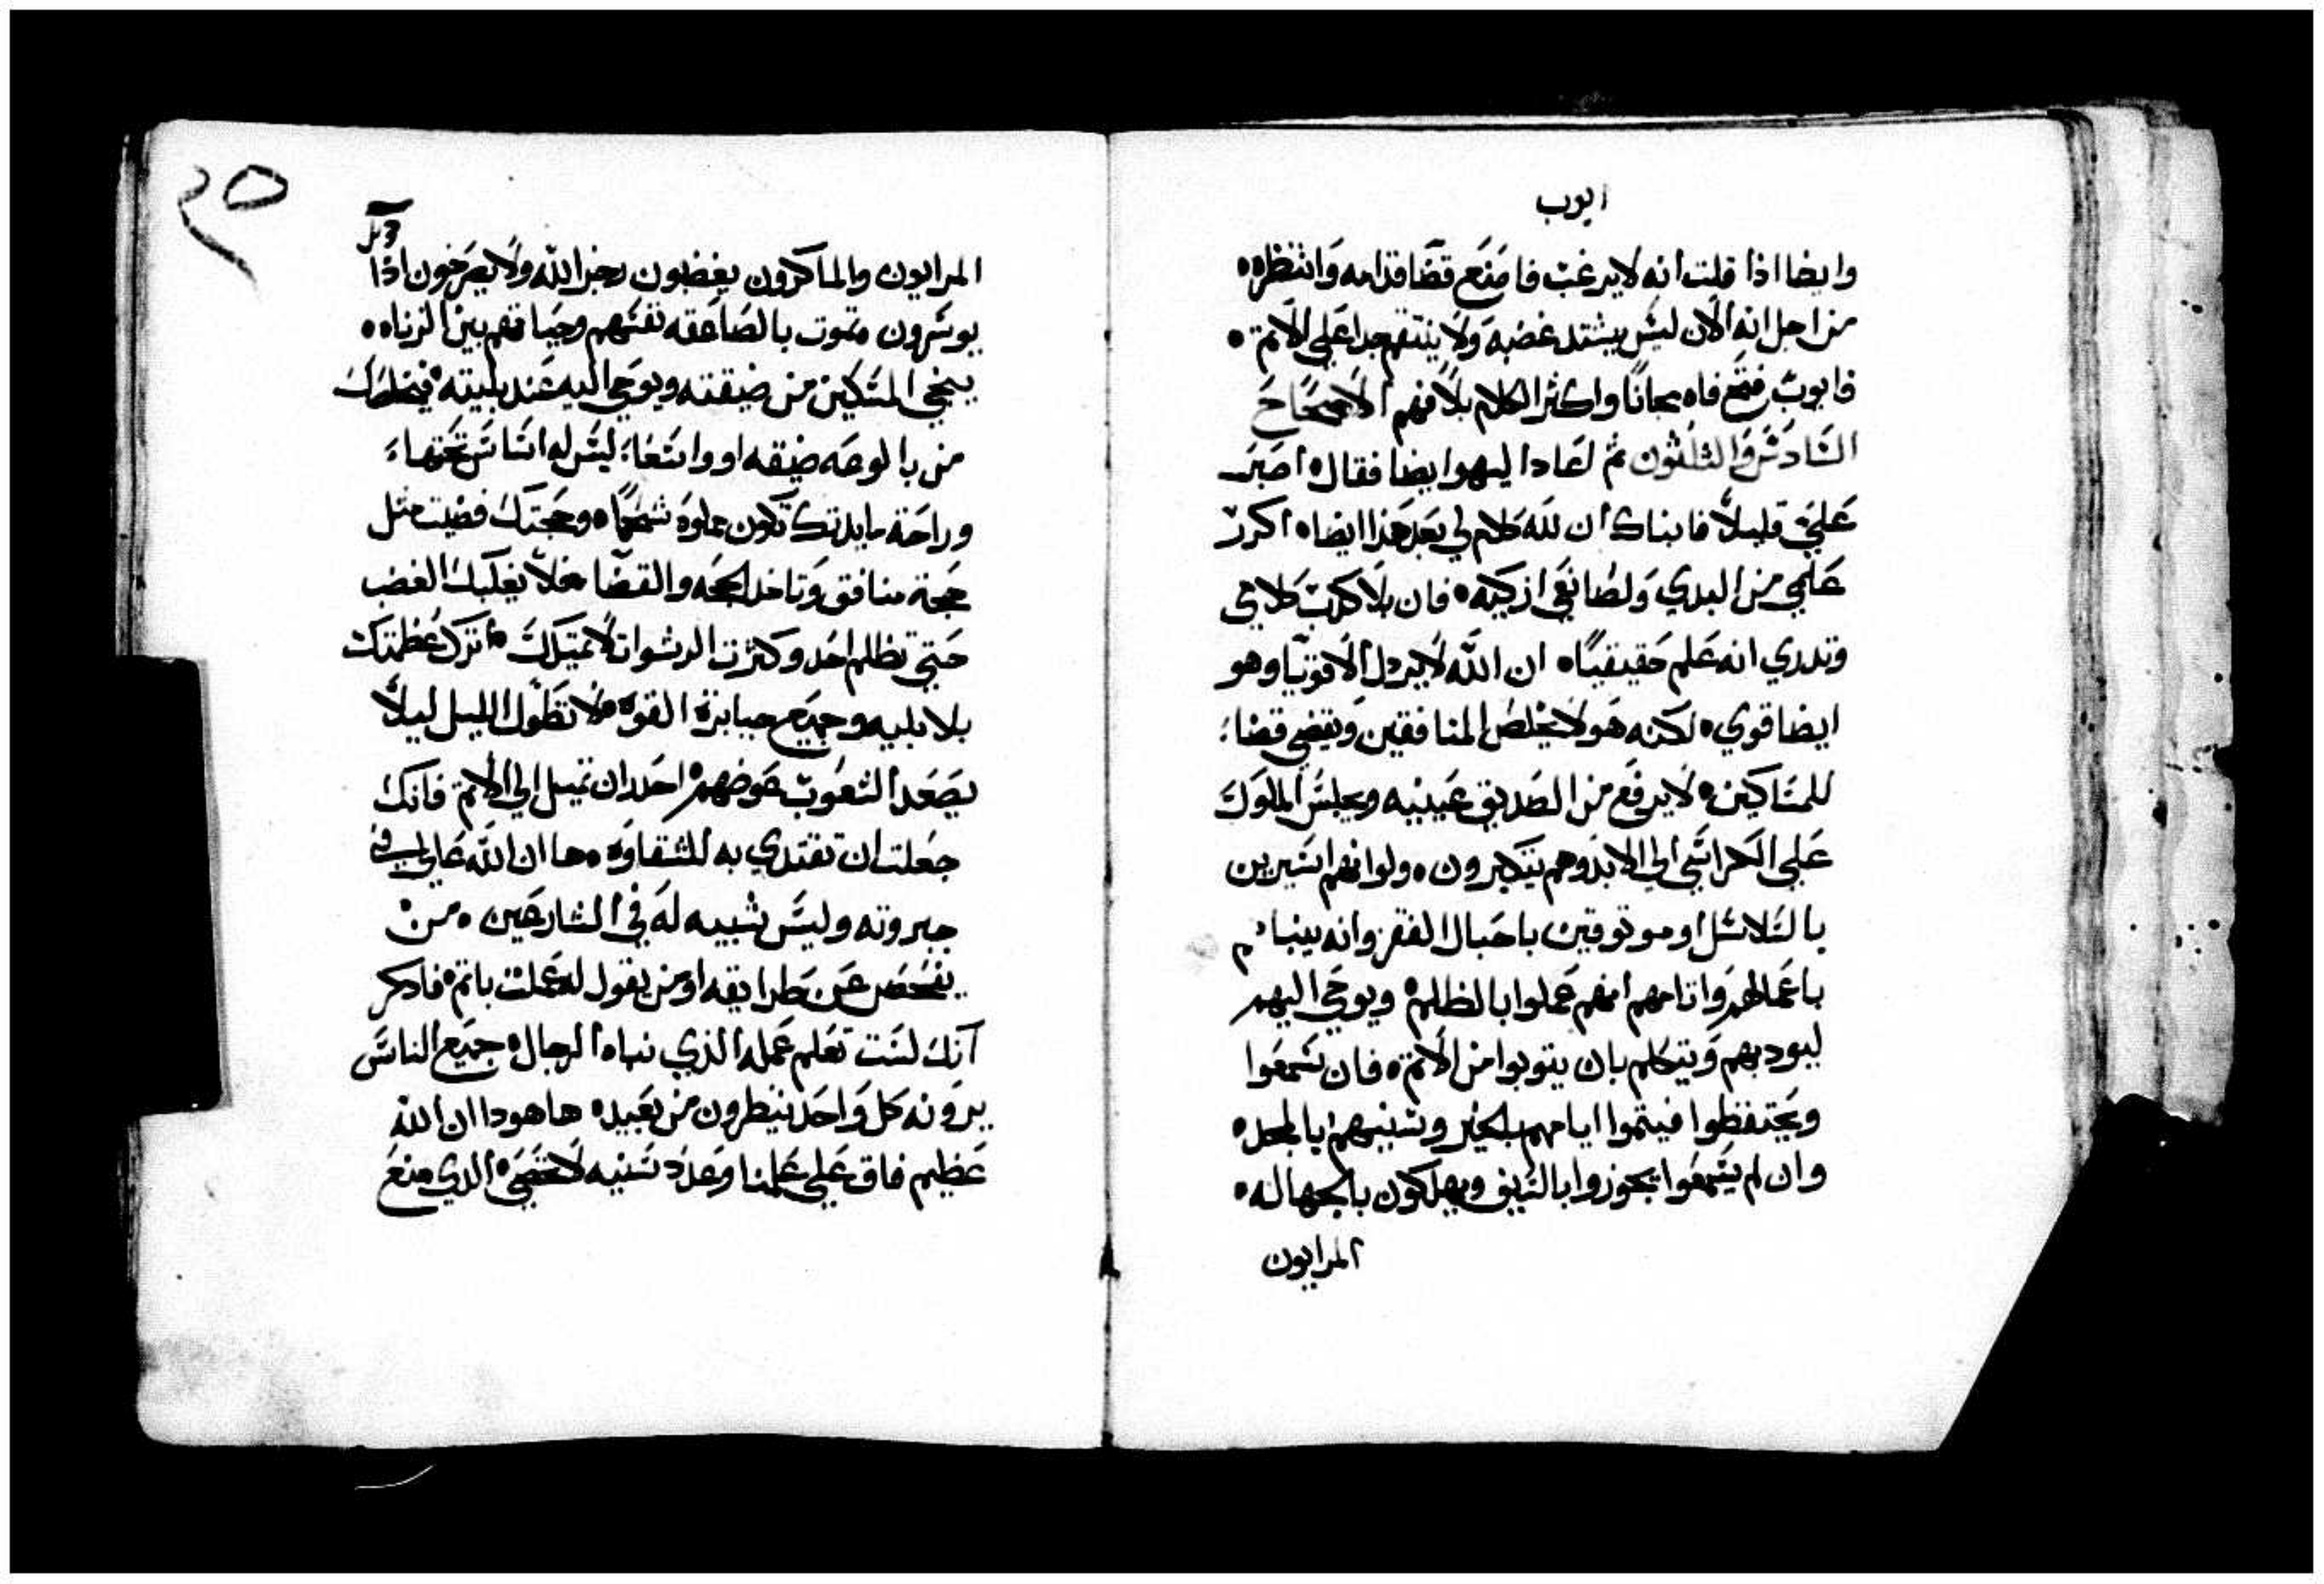 ايوب
وايضا اذا قلت انه لا يرغب فامنع قضا قدامه وانتظره ه
من اجل انه الان ليس يشتد غضبه ولا ينتقم جدا علي الاثم ه
فايوب فتح فاه مجانا واكثر الكلام بلا فهم الاصحاح
السادس والثلثون ثم لعاد اليهوا ايضا فقال اصبر
علي قليلا فانباك ان لله كلام لي بعد هذا ايضا ه اكرر
علمي من البدي ولصانعي ازكيه ه فان بلا كدب كلامي
وتدري انه علم حقيقيا ه ان الله لا يردل الاقويا وهو
ايضا قوي ه لكنه هو لا يخلص المنافقين ويقضي قضا
للمساكين ه لا يرفع من الصديق عينيه ويجلس الملوك
علي الكراسي الي الابد وهم يتكبرون ه ولو انهم اسيرين
بالسلاسل او موتوقين باحبال الفقر وانه ينباهم
باعمالهم واتامهم انهم عملوا بالظلم ه ويوحي اليهم
ليودبهم ويتكلم بان يتوبوا من الاتم ه فان سمعوا
ويحتفظوا فيتموا ايامهم بالخير وسنينهم بالمجد ه
وان لم يسمعوا يجوزوا بالسيف ويهلكون بالجهاله ه
المرايون
المرايون والماكرون يغضبون رجز الله ولا يصرخون اذا
يوسرون ه تموت بالصاعقه نفسهم وحياتهم بين الزناه ه
ينجي المسكين من ضيقته ويوحي اليه عند بليته ه فيخلصك
من بالوعه ضيقه او واسعا ليس له اساس تحتها
وراحة مايدتك تكون مملوه شحما ه وحجتك قضيت مثل
حجة منافق وتاخد الحجه والقضا ه فلا يغلبك الغضب
حتي تظلم احد وكثرت الرشوات لا تميلك ه اترك عظمتك
بلا بليه وجميع جبابرة القوة ه فلا تطول الليل ليلا
يصعد الشعوب عوضهم ه احدر ان تميل الي الاثم فانك
جعلت ان تقتدي به للشقاوه ه ها ان الله عالي في
جبروته وليس شبيه له في الشارعين ه من
يفحص عن طرايقه او من يقول له عملت باثم ه فادكر
انك لست تعلم عمله الذي نباه الرجال ه جميع الناس
يرونه كل واحد ينطرون من بعيد ه ها هودا ان الله
عظيم فاق علي علمنا وعدد سنيه لا تحصي ه الدي منع